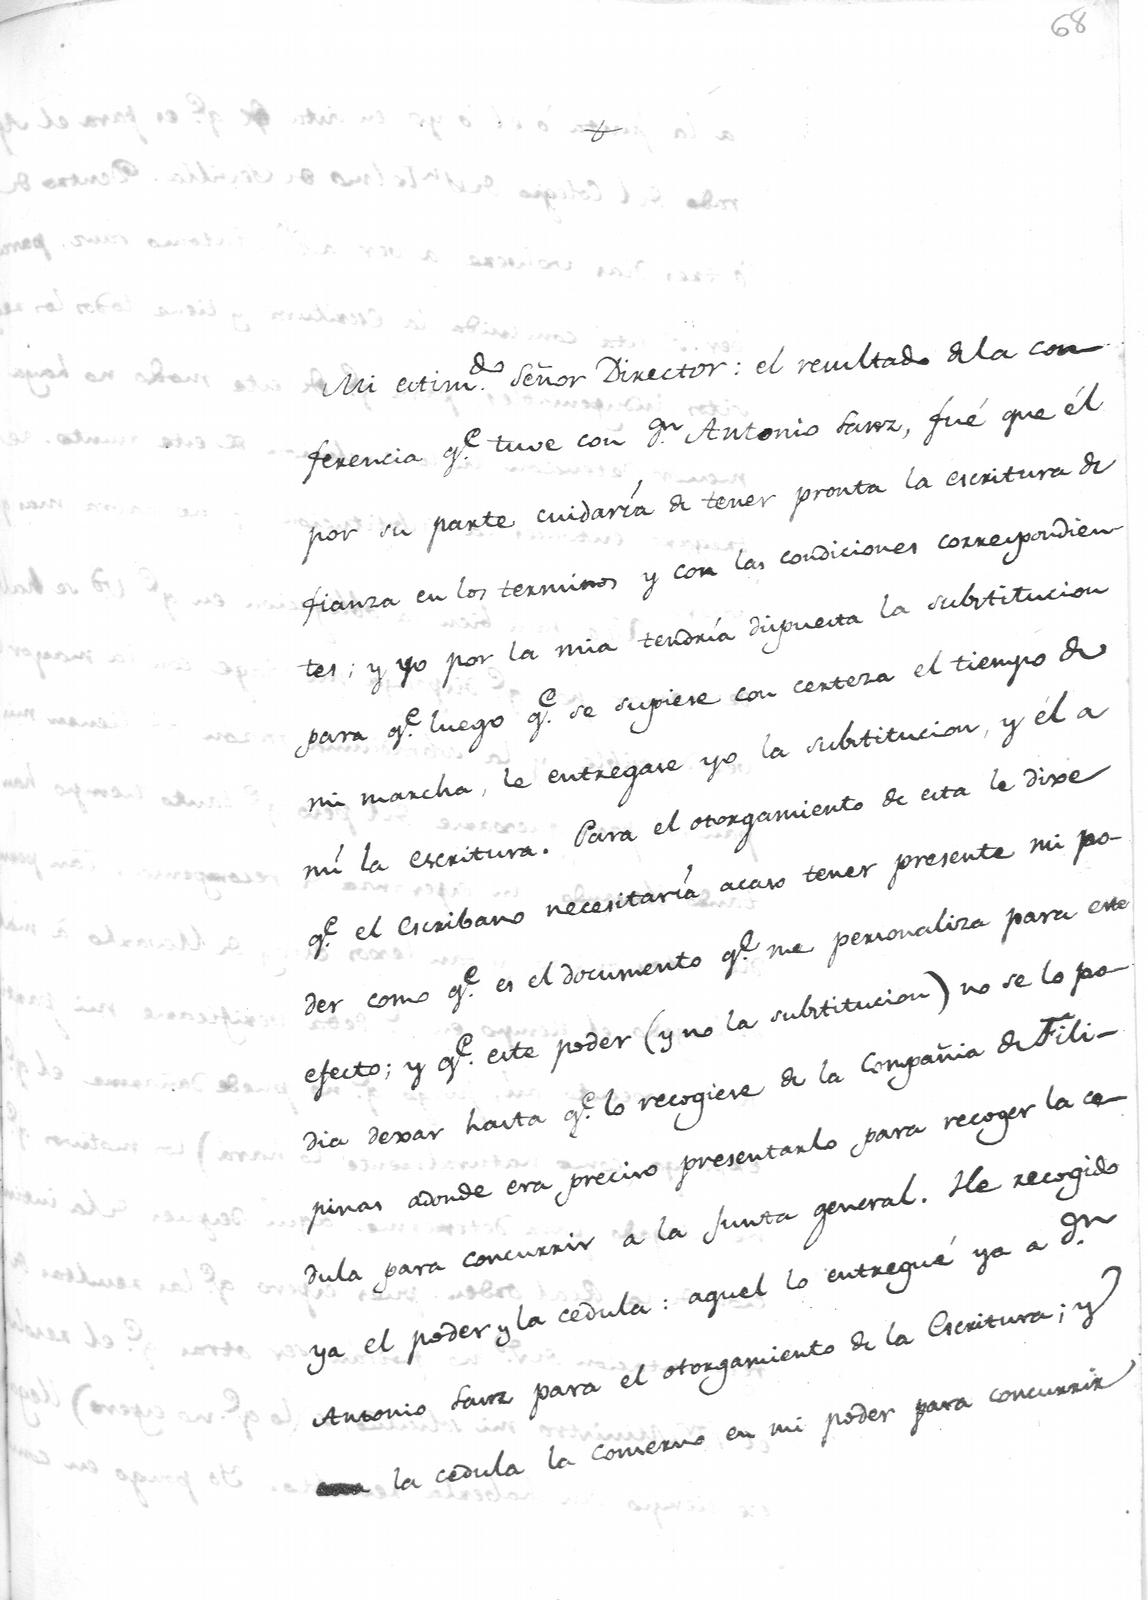 68
Mi estim.do Señor Director: el resultado de la con-
ferencia q.e tuve con D.n Antonio Sanz, fué que él
por su parte cuidaría de tener pronta la escritura de
fianza en los terminos y con las condiciones correspondien-
tes; y yo por la mia tendría dispuesta la substitucion
para q.e luego q.e se supiese con certeza el tiempo de
mi marcha, le entregase yo la substitucion, y él a
mí la escritura. Para el otorgamiento de esta le dixe
q.e el escribano necesitaría acaso tener presente mi po-
der como q.e es el documento q.e me personaliza para este
efecto; y q.e este poder (y no la substitucion) no se lo po-
dia dexar hasta q.e lo recogiese de la Compañia de Fili-
pinas adonde era preciso presentarlo para recoger la ce-
dula para concurrir a la Junta general. He recogido
ya el poder y la cedula: aquel lo entregué ya a D.n
Antonio Sanz para el otorgamiento de la Escritura; y
la cedula la conservo en mi poder para concurrir